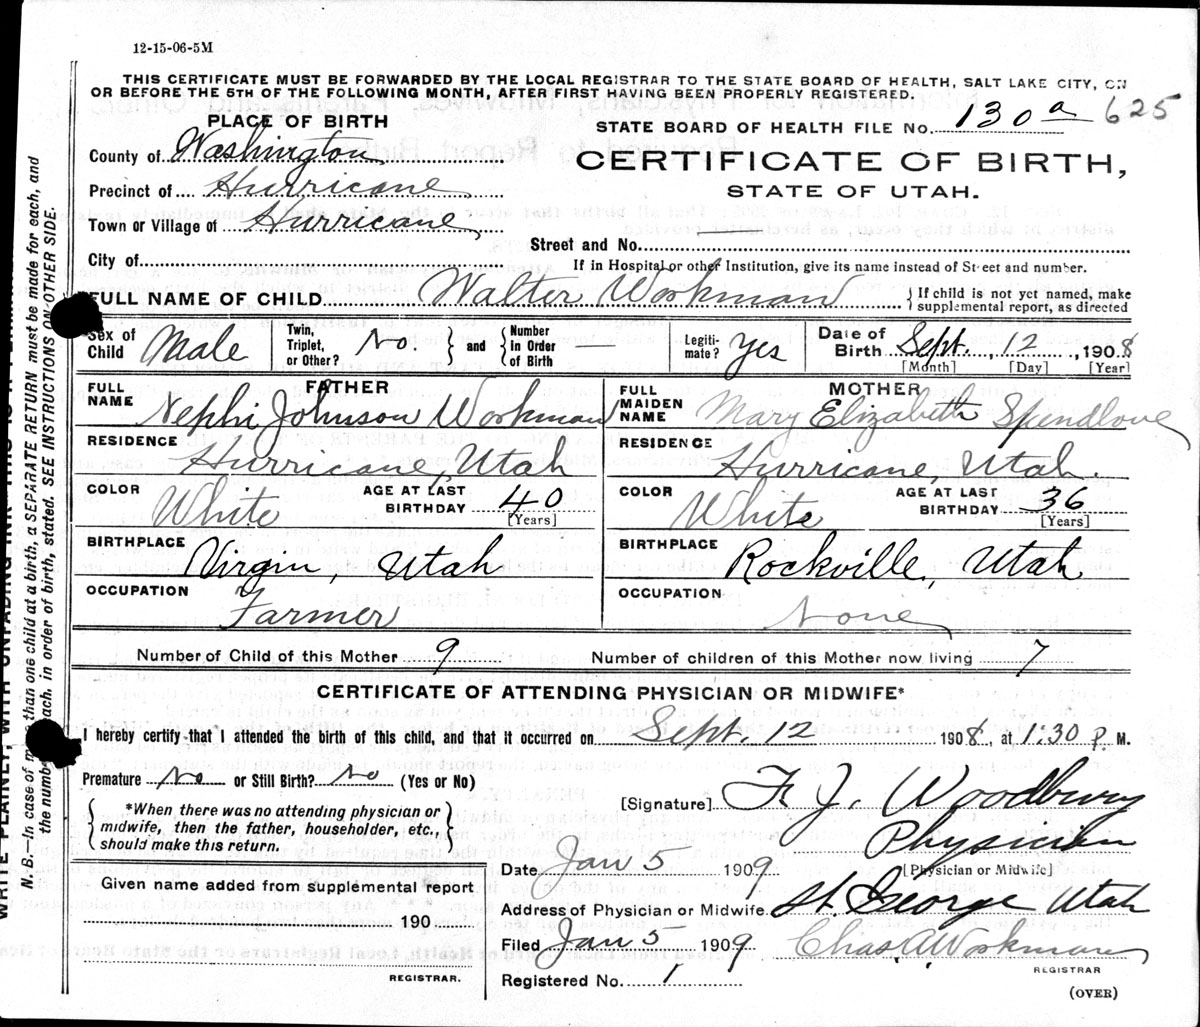 12-15-06-5M
THIS CERTIFICATE MUST BE FORWARDED BY THE LOCAL REGISTRAR TO THE STATE BOARD OF HEALTH, SALT LAKE CITY, ON
OR BEFORE THE 5TH OF THE FOLLOWING MONTH, AFTER FIRST HAVING BEEN PROPERLY REGISTERED.
PLACE OF BIRTH
STATE BOARD OF HEALTH FILE No. 130a 625
County of Washington
CERTIFICATE OF BIRTH,
Precinct of Hurricane
STATE OF UTAH.
Town or Village of Hurricane
Street and No.
City of
If in Hospital or other Institution, give its name instead of Street and number.
FULL NAME OF CHILD Walter Workman { If child is not yet named, make supplemental report, as directed
Sex of Child Male Twin, Triplet, or Other? No. } and { Number in Order of Birth — Legiti-mate? Yes Date of Birth Sept. 12, 1908
[Month] [Day] [Year]
FATHER
FULL NAME Nephi Johnson Workman
RESIDENCE Hurricane, Utah
COLOR White AGE AT LAST BIRTHDAY 40
[Years]
BIRTHPLACE Virgin, Utah
OCCUPATION Farmer
MOTHER
FULL MAIDEN NAME Mary Elizabeth Spendlove
RESIDENCE Hurricane, Utah.
COLOR White AGE AT LAST BIRTHDAY 36
[Years]
BIRTHPLACE Rockville, Utah
OCCUPATION None
Number of Child of this Mother 9 Number of children of this Mother now living 7
CERTIFICATE OF ATTENDING PHYSICIAN OR MIDWIFE*
I hereby certify that I attended the birth of this child, and that it occurred on Sept. 12 1908, at 1:30 P. M.
Premature No or Still Birth? No (Yes or No)
{ *When there was no attending physician or
midwife, then the father, householder, etc.,
should make this return. }
[Signature] F. J. Woodbury
Physician
[Physician or Midwife]
Date Jan 5 1909
Address of Physician or Midwife. St. George Utah
Filed Jan 5 1909 Chas. A. Workman
REGISTRAR
Registered No. 1
(OVER)
Given name added from supplemental report
190
REGISTRAR.
WRITE PLAINLY, WITH UNFADING INK—THIS IS A PERMAN
N. B.—In case of more than one child at a birth, a SEPARATE RETURN must be made for each, and
the number of each, in order of birth, stated. SEE INSTRUCTIONS ON OTHER SIDE.